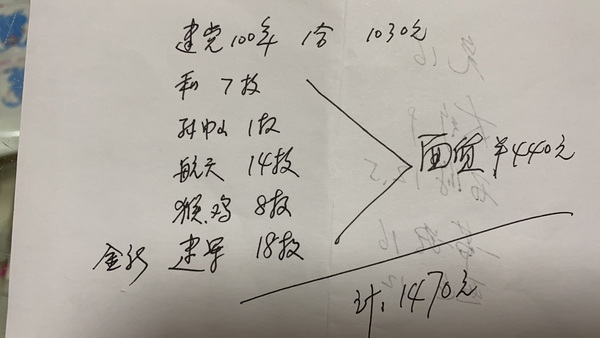 建党100年 1合 1030元
和 7枚
孙中山 1枚
航天 14枚
猴.鸡 8枚
建军 18枚
面质 ¥440元
计.1470元